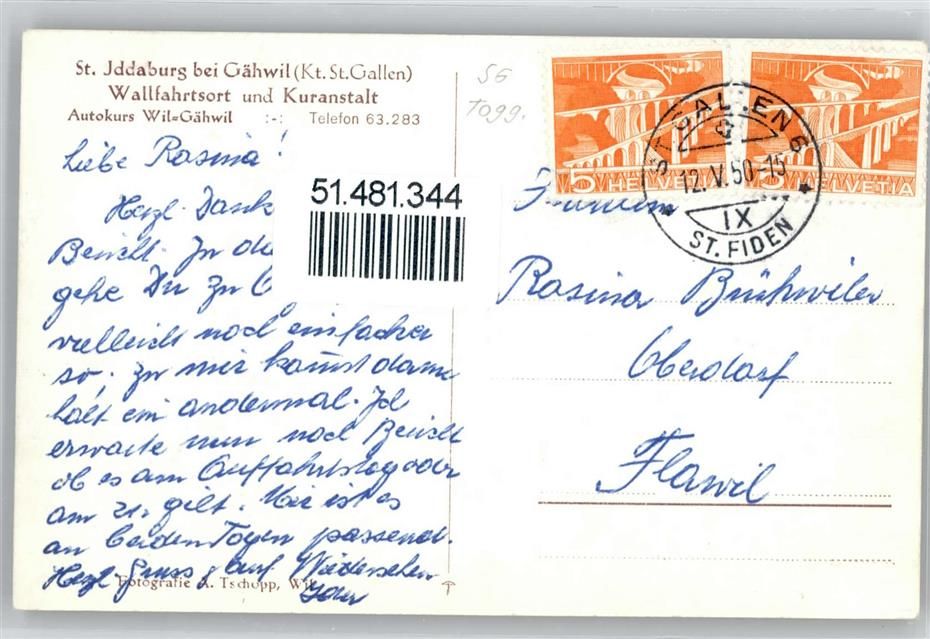 St. Jddaburg bei Gähwil (Kt. St. Gallen)
Wallfahrtsort und Kuranstalt
Autokurs Wil=Gähwil :-: Telefon 63.283
SG
Togg.
5 HELVETIA
5 HELVETIA
ST. GALLEN 6
12.V.50-15
IX
ST. FIDEN
51.481.344
Liebe Rosina!
Herzl. Dank
Bericht. In
gehe Du zu
vielleicht noch einfacher
so, zu mir kommst dann
halt ein andermal. Ich
erwarte nun noch Bericht
ob es am Auffahrtstag oder
am 21. gilt. Mir ist es
an beiden Tagen passend.
Herzl. Gruss & auf Wiedersehen
Fotografie A. Tschopp, Wil
Fräulein
Rosina Brühwiler
Oberdorf
Flawil